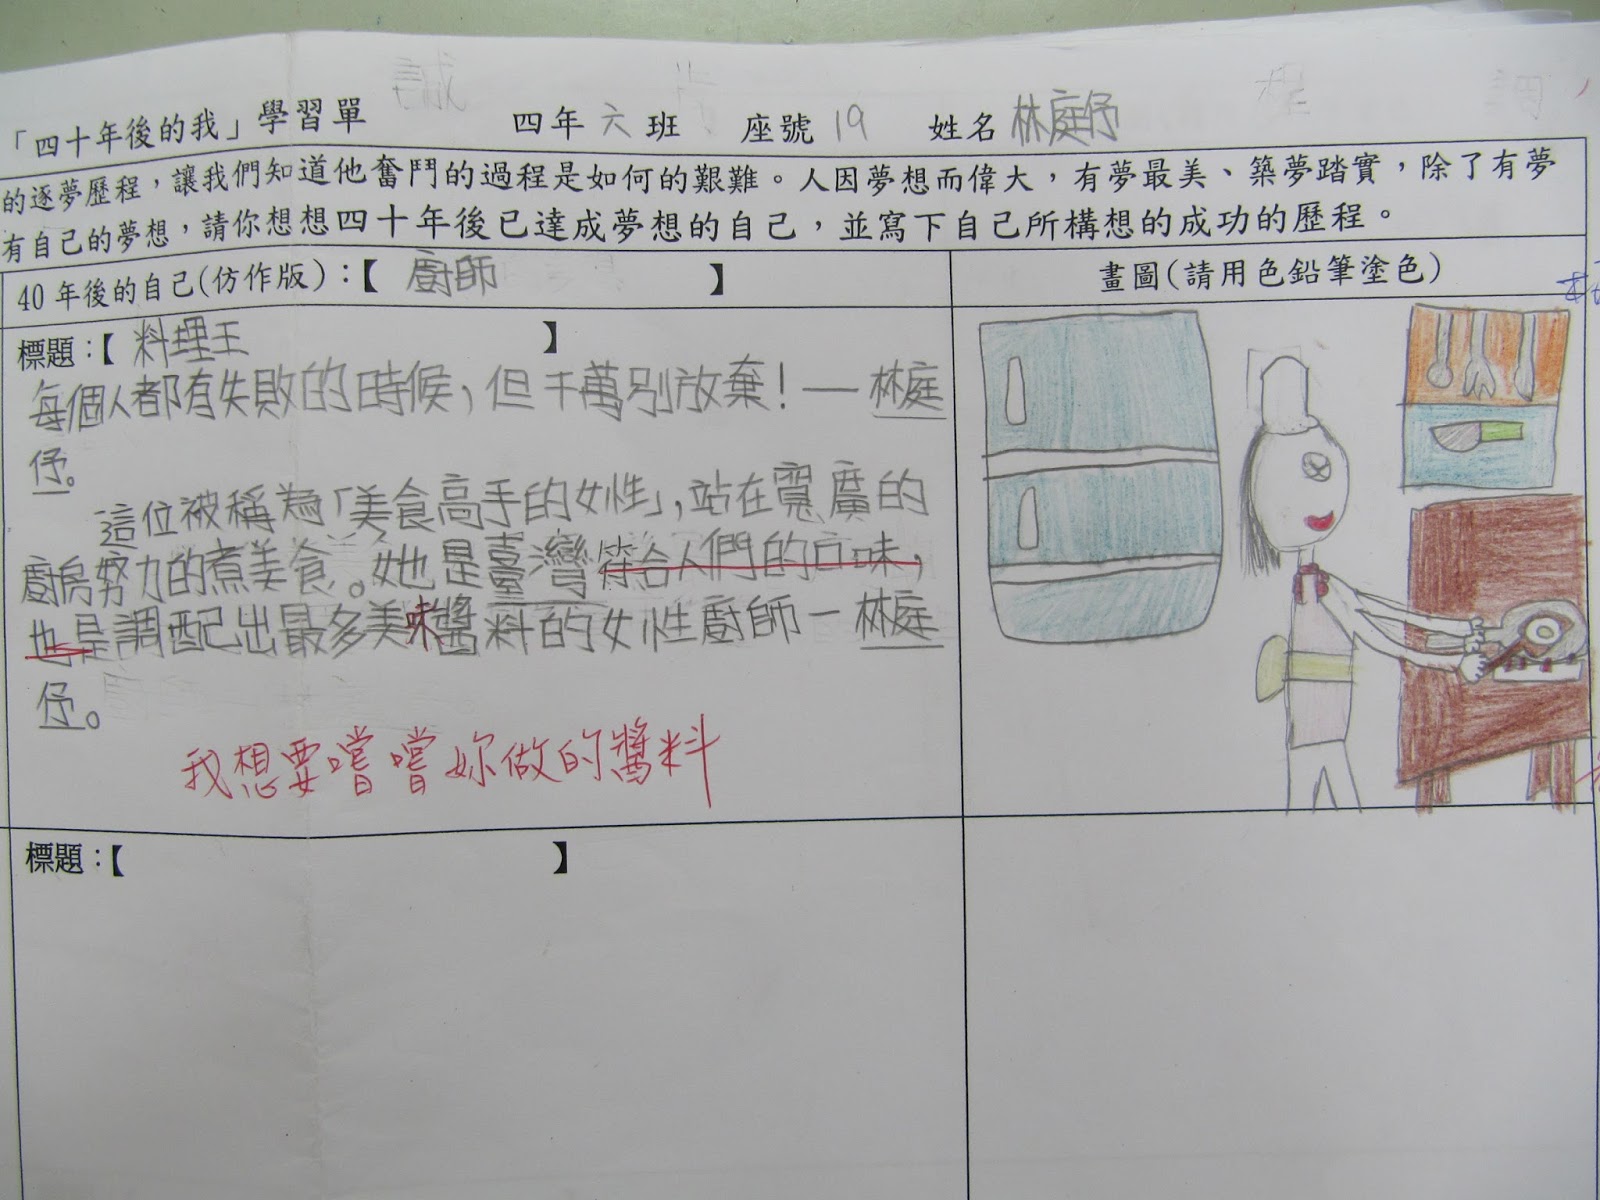 「四十年後的我」學習單 四年六班 座號 19 姓名 林庭伃
的逐夢歷程，讓我們知道他奮鬥的過程是如何的艱難。人因夢想而偉大，有夢最美、築夢踏實，除了有夢
有自己的夢想，請你想想四十年後已達成夢想的自己，並寫下自己所構想的成功的歷程。
40年後的自己(仿作版)：【 廚師 】
畫圖(請用色鉛筆塗色)
標題：【 料理王 】
每個人都有失敗的時候，但千萬別放棄！—林庭
伃。
這位被稱為「美食高手的女性」，站在寬廣的
廚房努力的煮美食。她也是臺灣符合人們的口味，
也是調配出最多美味醬料的女性廚師—林庭
伃。
我想要嚐嚐妳做的醬料
標題：【 】